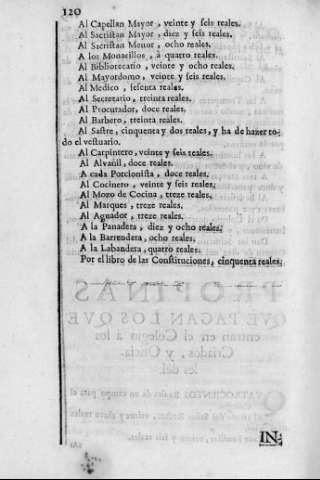 120
Al Capellan Mayor, veinte y seis reales.
Al Sacristan Mayor, diez y seis reales.
Al Sacristan Menor, ocho reales.
A los Monacillos, à quatro reales.
Al Bibliotecario, veinte y ocho reales.
Al Mayordomo, veinte y seis reales.
Al Medico, sesenta reales.
Al Secretario, treinta reales.
Al Procurador, doce reales.
Al Barbero, treinta reales.
Al Sastre, cinquenta y dos reales, y ha de hazer to-
do el vestuario.
Al Carpintero, veinte y seis reales.
Al Alvañil, doce reales.
A cada Porcionista, doce reales.
Al Cocinero, veinte y seis reales.
Al Mozo de Cocina, treze reales.
Al Marques, treze reales.
Al Aguador, treze reales.
A la Panadera, diez y ocho reales.
A la Barrendera, ocho reales.
A la Labandera, quatro reales.
Por el libro de las Constituciones, cinquenta reales.
PROPINAS
QUE PAGAN LOS QUE
entran en el Colegio á los
Criados, y Oficia-
les dèl
IN-